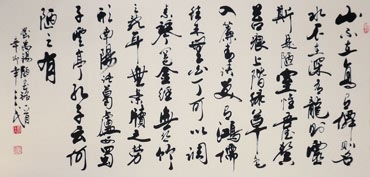 山不在高有僊則名
水不在深有龍則靈
斯是陋室惟吾德馨
苔痕上階綠草色
入簾青談笑有鴻儒
往來無白丁可以調
素琴閱金經無絲竹
之亂耳無案牘之勞
形南陽諸葛廬西蜀
子雲亭孔子云何
陋之有